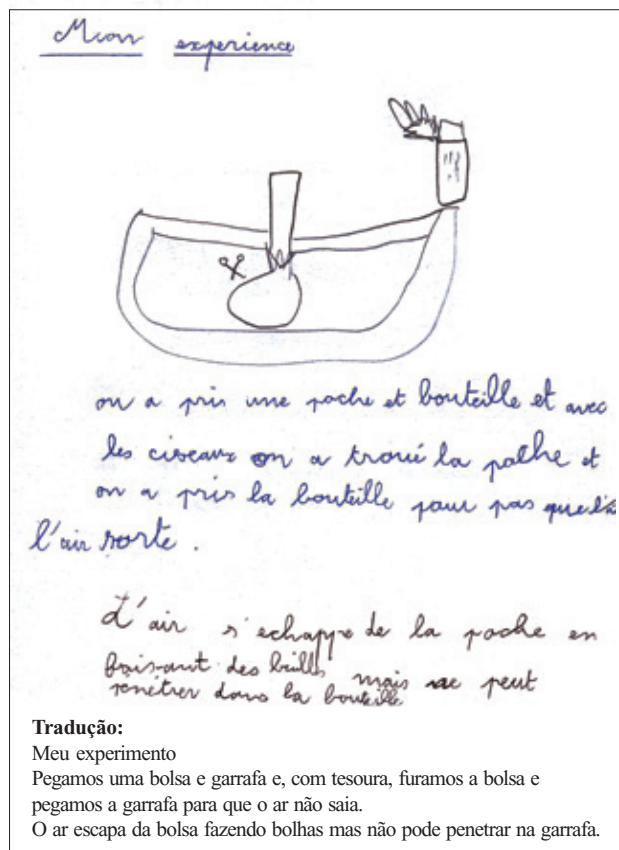 Mon experience
on a pris une poche et bouteille et avec
les ciseaux on a troué la poche et
on a pris la bouteille pour pas que
l'air sorte.
L'air s'echappe de la poche en
faisant des bulles mais ne peut
penétrer dans la bouteille
Tradução:
Meu experimento
Pegamos uma bolsa e garrafa e, com tesoura, furamos a bolsa e
pegamos a garrafa para que o ar não saia.
O ar escapa da bolsa fazendo bolhas mas não pode penetrar na garrafa.